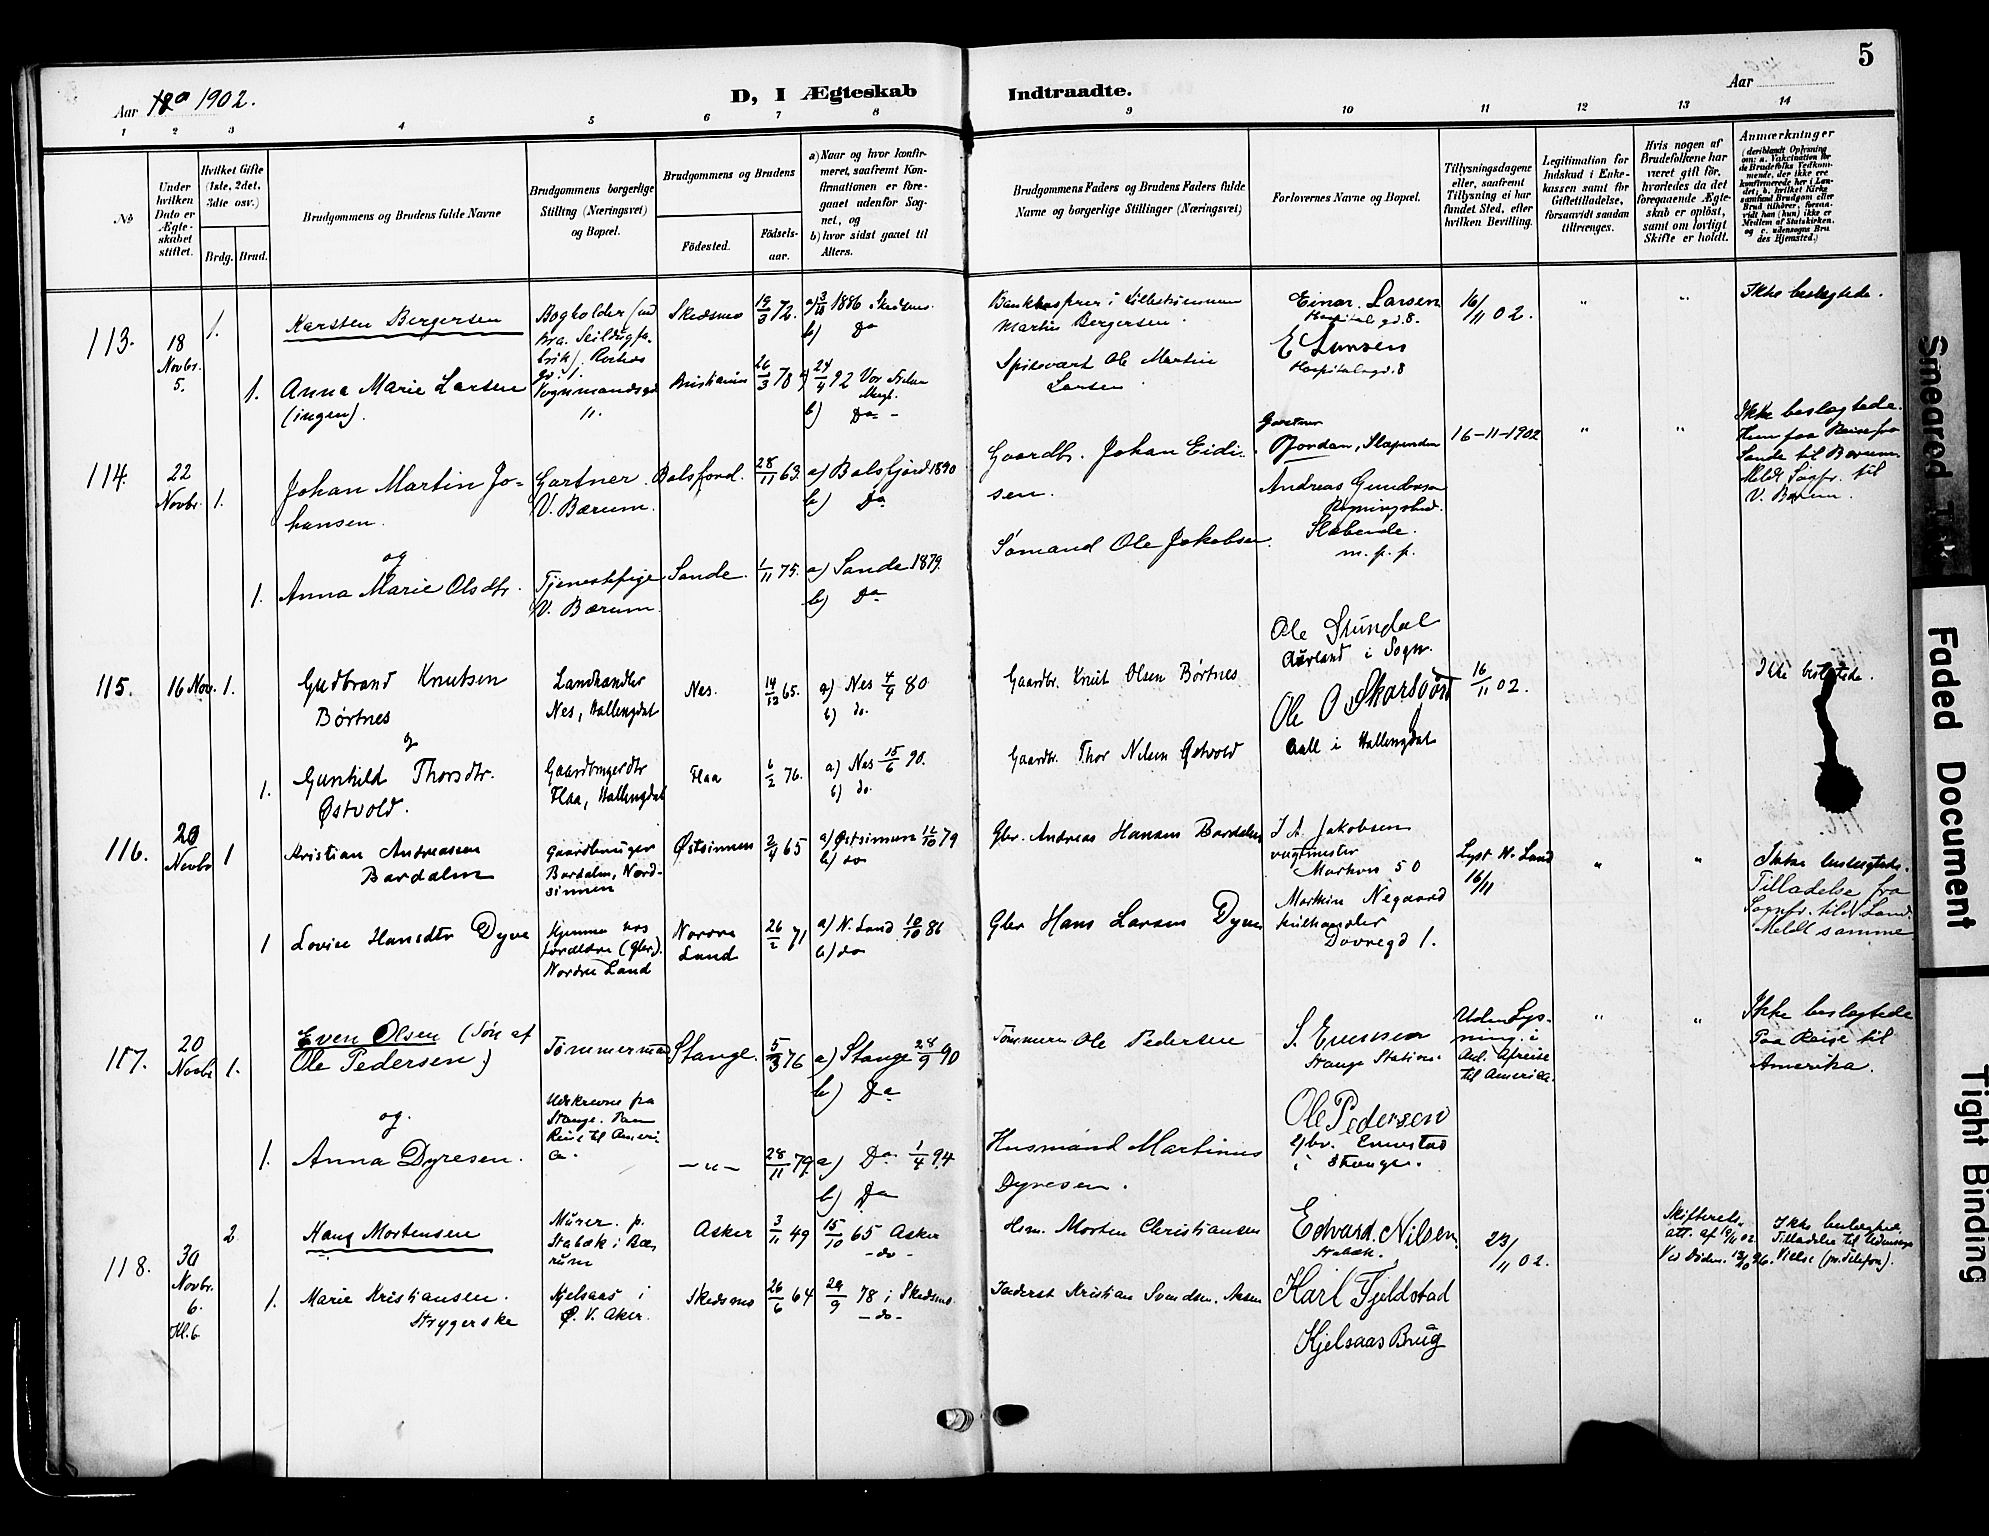 5
Aar 1902.
D, I Ægteskab Indtraadte.
Aar
1 2 3 4 5 6 7 8 9 10 11 12 13 14
No
Under hvilken Dato er Ægteskabet stiftet.
Hvilket Gifte (1ste, 2det, 3die osv.)
Brdg. Brud.
Brudgommens og Brudens fulde Navne
Brudgommens borgerlige Stilling (Næringsvei) og Bopæl.
Brudgommens og Brudens
Fødested. Fødselsaar.
a) Naar og hvor konfirmeret, saafremt Konfirmationen er foregaaet udenfor Sognet, og
b) hvor sidst gaaet til Alters.
Brudgommens Faders og Brudens Faders fulde Navne og borgerlige Stillinger (Næringsvei)
Forlovernes Navne og Bopæl.
Tillysningsdagene eller, saafremt Tillysning ei har fundet Sted, efter hvilken Bevilling.
Legitimation for Indskud i Enkekassen samt for Giftetilladelse, forsaavidt saadan tiltrænges.
Hvis nogen af Brudefolkene har været gift før, hvorledes da det foregaaende Ægteskab er opløst, samt om lovligt Skifte er holdt.
Anmærkninger
(deriblandt Oplysning om: a. Vakcination for de Brudefolks Vedkommende, der ikke ere konfirmerede her i Landet; b. hvilket Kirkesamfund Brudgom eller Brud tilhører, forsaavidt han (hun) ikke er Medlem af Statskirken. og c. udensogns Brudes Hjemsted.)
113. 18 Novbr. 5. 1. Karsten Bergersen
Bogholder Skedsmo 19/3 72. a) 1886 Skedsmo. b) Do
Martin Bergersen.
Einar Larsen Hospitalgd. 8.
16/11 02. " " Ikke beslegtede.
1. Anna Marie Larsen (ingen).
Vognmandsgd 11. Kristiania 26/3 78 a) 24/4 92 Vor Frelser b) Do -
Spisevært Ole Martin Larsen
E Larsen Hospitalsgd. 8
114. 22 Novbr. 1. Johan Martin Johansen.
Gartner. V. Bærum. Balsfjord. 28/11 63. a) Balsfjord 1890 b) Do
Gaardbr. Johan Eidisen.
Gartner Jordan, Slependen
16-11-1902 " "
Ikke beslegtede.
Sande til Bærum.
Meldt Sognpr. til V. Bærum.
og
1. Anna Marie Olsdtr.
Tjenestepige V. Bærum. Sande. 1/11 75. a) Sande 1879. b) Do
Sømand Ole Jakobsen.
Andreas Gundersen
Slebende.
m. p. p.
115. 16 Nov. 1. Gudbrand Knutsen Børtnes
Landhandler Nes, Hallingdal Nes. 14/12 65. a) Nes 4/9 80 b) do.
Gaardbr. Knut Olsen Børtnes
Ole Stundal Aurland i Sogn.
16/11 02. Ikke beslegtede.
og
1. Gunhild Thorsdtr. Østvold.
Gaardbrugerdtr Flaa, Hallingdal Flaa 6/2 76. a) Nes 15/6 90. b) do.
Gaardbr. Thor Nilsen Østvold
Ole O Skarsgård
Aall i Hallingdal
116. 20 Novbr 1 Kristian Andreassen Bardalen
Gaardbruger Bardalen, Nordsinnen Østsinnen 2/4 65 a) Østsinnen 12/10 79 b) do
Gbr. Andreas Hansen Bardalen
J A. Jakobsen vagtmester Markvn 50
Lyst N. Land 16/11 " "
Ikke beslegtede.
Tilladelse fra Sognpr. til N Land. Meldt samme
1 Lovise Hansdtr Dyve
Hjemme hos forældre (gbr). Nordre Land Nordre Land 26/2 71 a) N. Land 10/10 86 b) do
Gbr Hans Larsen Dyve
Martin Negaard kulhandler Dovregd 1.
117. 20 Novbr 1. Even Olsen (Søn af Ole Pedersen)
Tømmermd Stange. 5/3 76 a) Stange 28/9 90 b) Do
Tømmerm Ole Pedersen
S. Evensen Stange Station.
Uden Lysning i Anl. Afreise til Amerika. " "
Ikke beslegtede
Paa Reise til Amerika.
og.
1. Anna Dyresen.
Udskrevne fra Stange. Paa Reise til Amerika.
- " - 28/11 79. a) Do 1/4 94 b) Do
Husmand Martinus Dyresen.
Ole Pedersen
gbr. Ennestad i Stange.
118. 30 Novbr. 6. Kl. 6 2 Hans Mortensen
Murer. p. Stabæk i Bærum Asker 3/11 49 15/10 65 Asker - do -
Hsm. Morten Christiansen
Edvard. Nilsen. Stabæk.
23/11 02.
Skifteretsatt. af 19/11 02. Ved Døden 12/10 96.
Ikke beslegtede. Tilladelse til Udensogns Vielse (pr. Telefon).
1. Marie Kristiansen. Strygerske
Kjelsaas i Ø. V. Aker. Skedsmo 26/6 64 29/9 78 i Skedsmo. - do -
Inderst Kristian Svendsen.
Karl Fjeldstad
Kjelsaas Brug
Smeared
Faded Document
Tight Binding